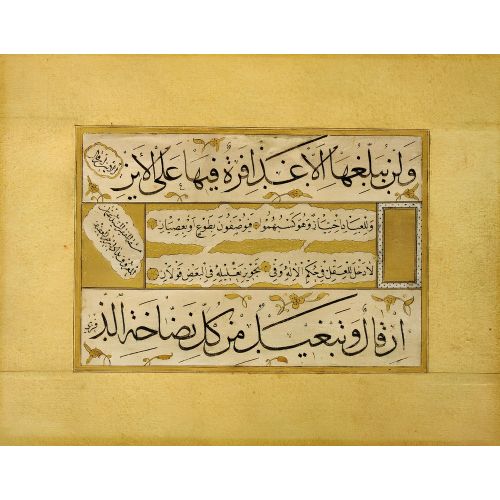 ولن يبلغها الا عذافرة فيها على الاين
وللعباد اختيار وهو كسبهموا فيوصفون بطوع او بعصيان
لا دخل للعقل في حكم الاله وفي تجويز تعليله في البعض قولان
ارقال وتبغيل من كل نضاخة الذ